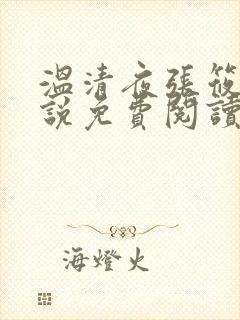 溫清夜張筱
說免費閱讀
海燈火